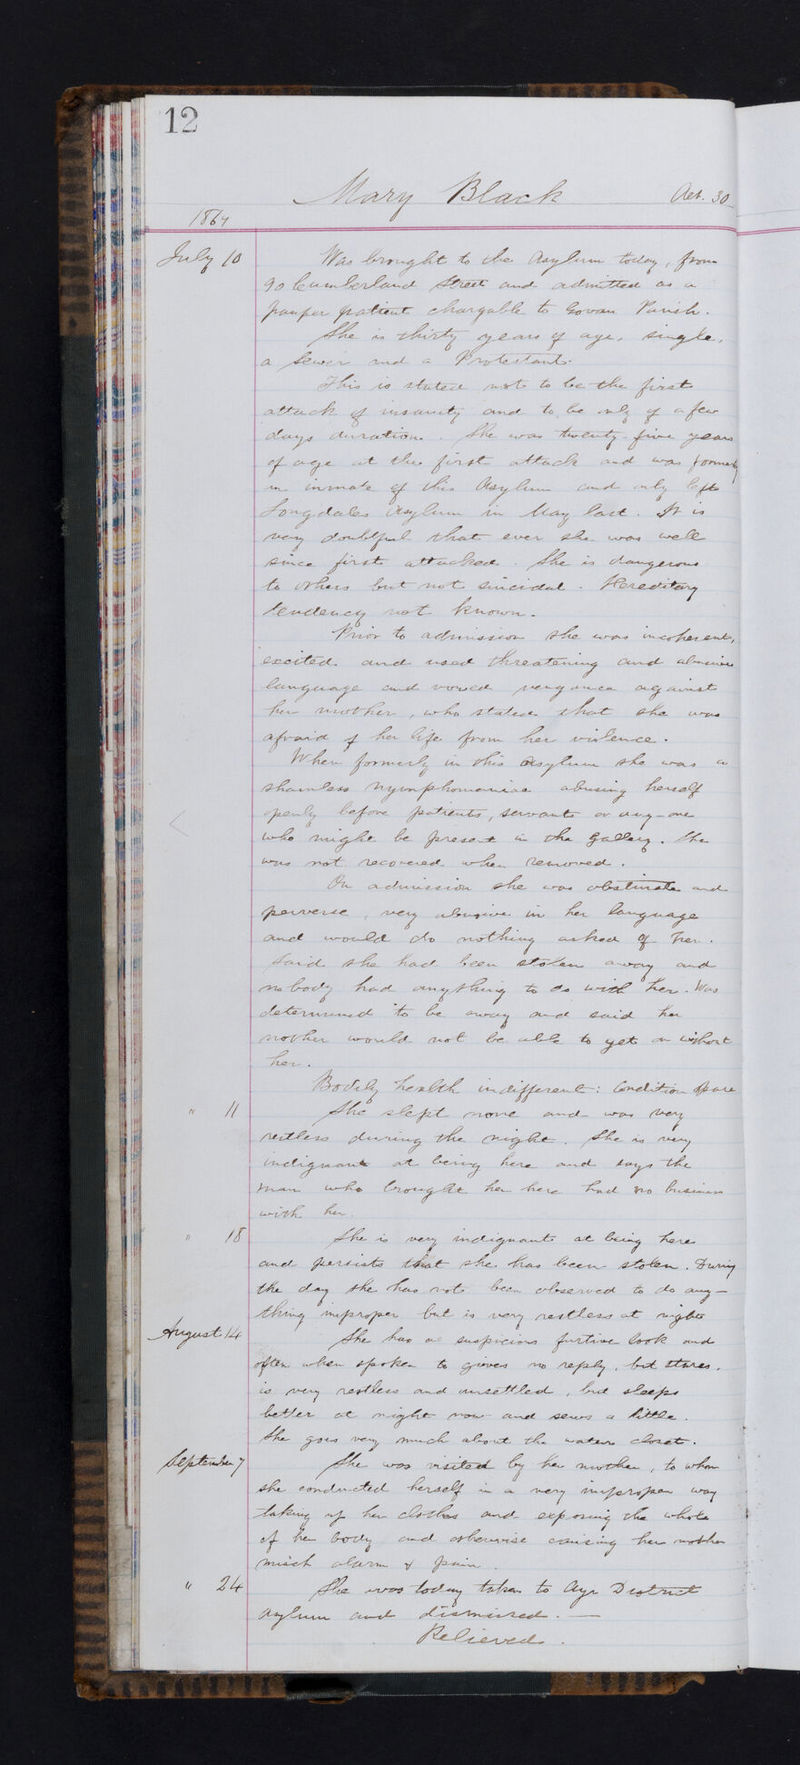 12
Mary Black Aet. 30
1867
July 10 Was brought to the Asylum today, from
90 Cumberland Street and admitted as a
pauper patient chargable to Govan Parish.
She is thirty years of age, single,
a Sewer and a Protestant.
This is stated not to be the first
attack of insanity and to be only of a few
days duration. She was twenty-five years
of age at the first attack and was formerly
an inmate of this Asylum and only left
Longdales Asylum in May last. It is
very doubtful that ever she was well
since first attacked. She is dangerous
to others but not suicidal. Hereditary
tendency not known.
Prior to admission she was incoherent,
excited and used threatening and abusive
language and vowed vengance against
her mother, who stated that she was
afraid of her life from her violence.
When formerly in this Asylum she was a
shameless nymphomaniac abusing herself
openly before patients, servants or any-one
who might be present in the Gallery. She
was not recovered when removed.
On admission she was obstinate and
perverse, very abusive in her language
and would do nothing asked of her.
Said she had been stolen away and
nobody had anything to do with her. Was
determined to be away and said her
mother would not be able to get on without
her.
Bodily health indifferent: Condition spare
" 11 She slept none and was very
restless during the night. She is very
indignant at being here and says the
man who brought her here had no business
with her.
" 18 She is very indignant at being here
and persists that she has been stolen. During
the day she has not been observed to do any-
thing improper but is very restless at night
August 14 She has a suspicious furtive look and
often when spoken to gives no reply, but stares.
is very restless and unsettled, but sleeps
better at night now and sews a little.
She goes very much about the water closet.
September 7 She was visited by her mother, to whom
she conducted herself in a very improper way
taking up her clothes and exposing the whole
of her body and otherwise causing her mother
much alarm & pain.
" 24 She was today taken to Ayr District
Asylum and dismissed. —
Relieved.